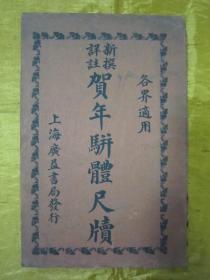 各界適用
新撰
詳註
賀年駢體尺牘
上海廣益書局發行